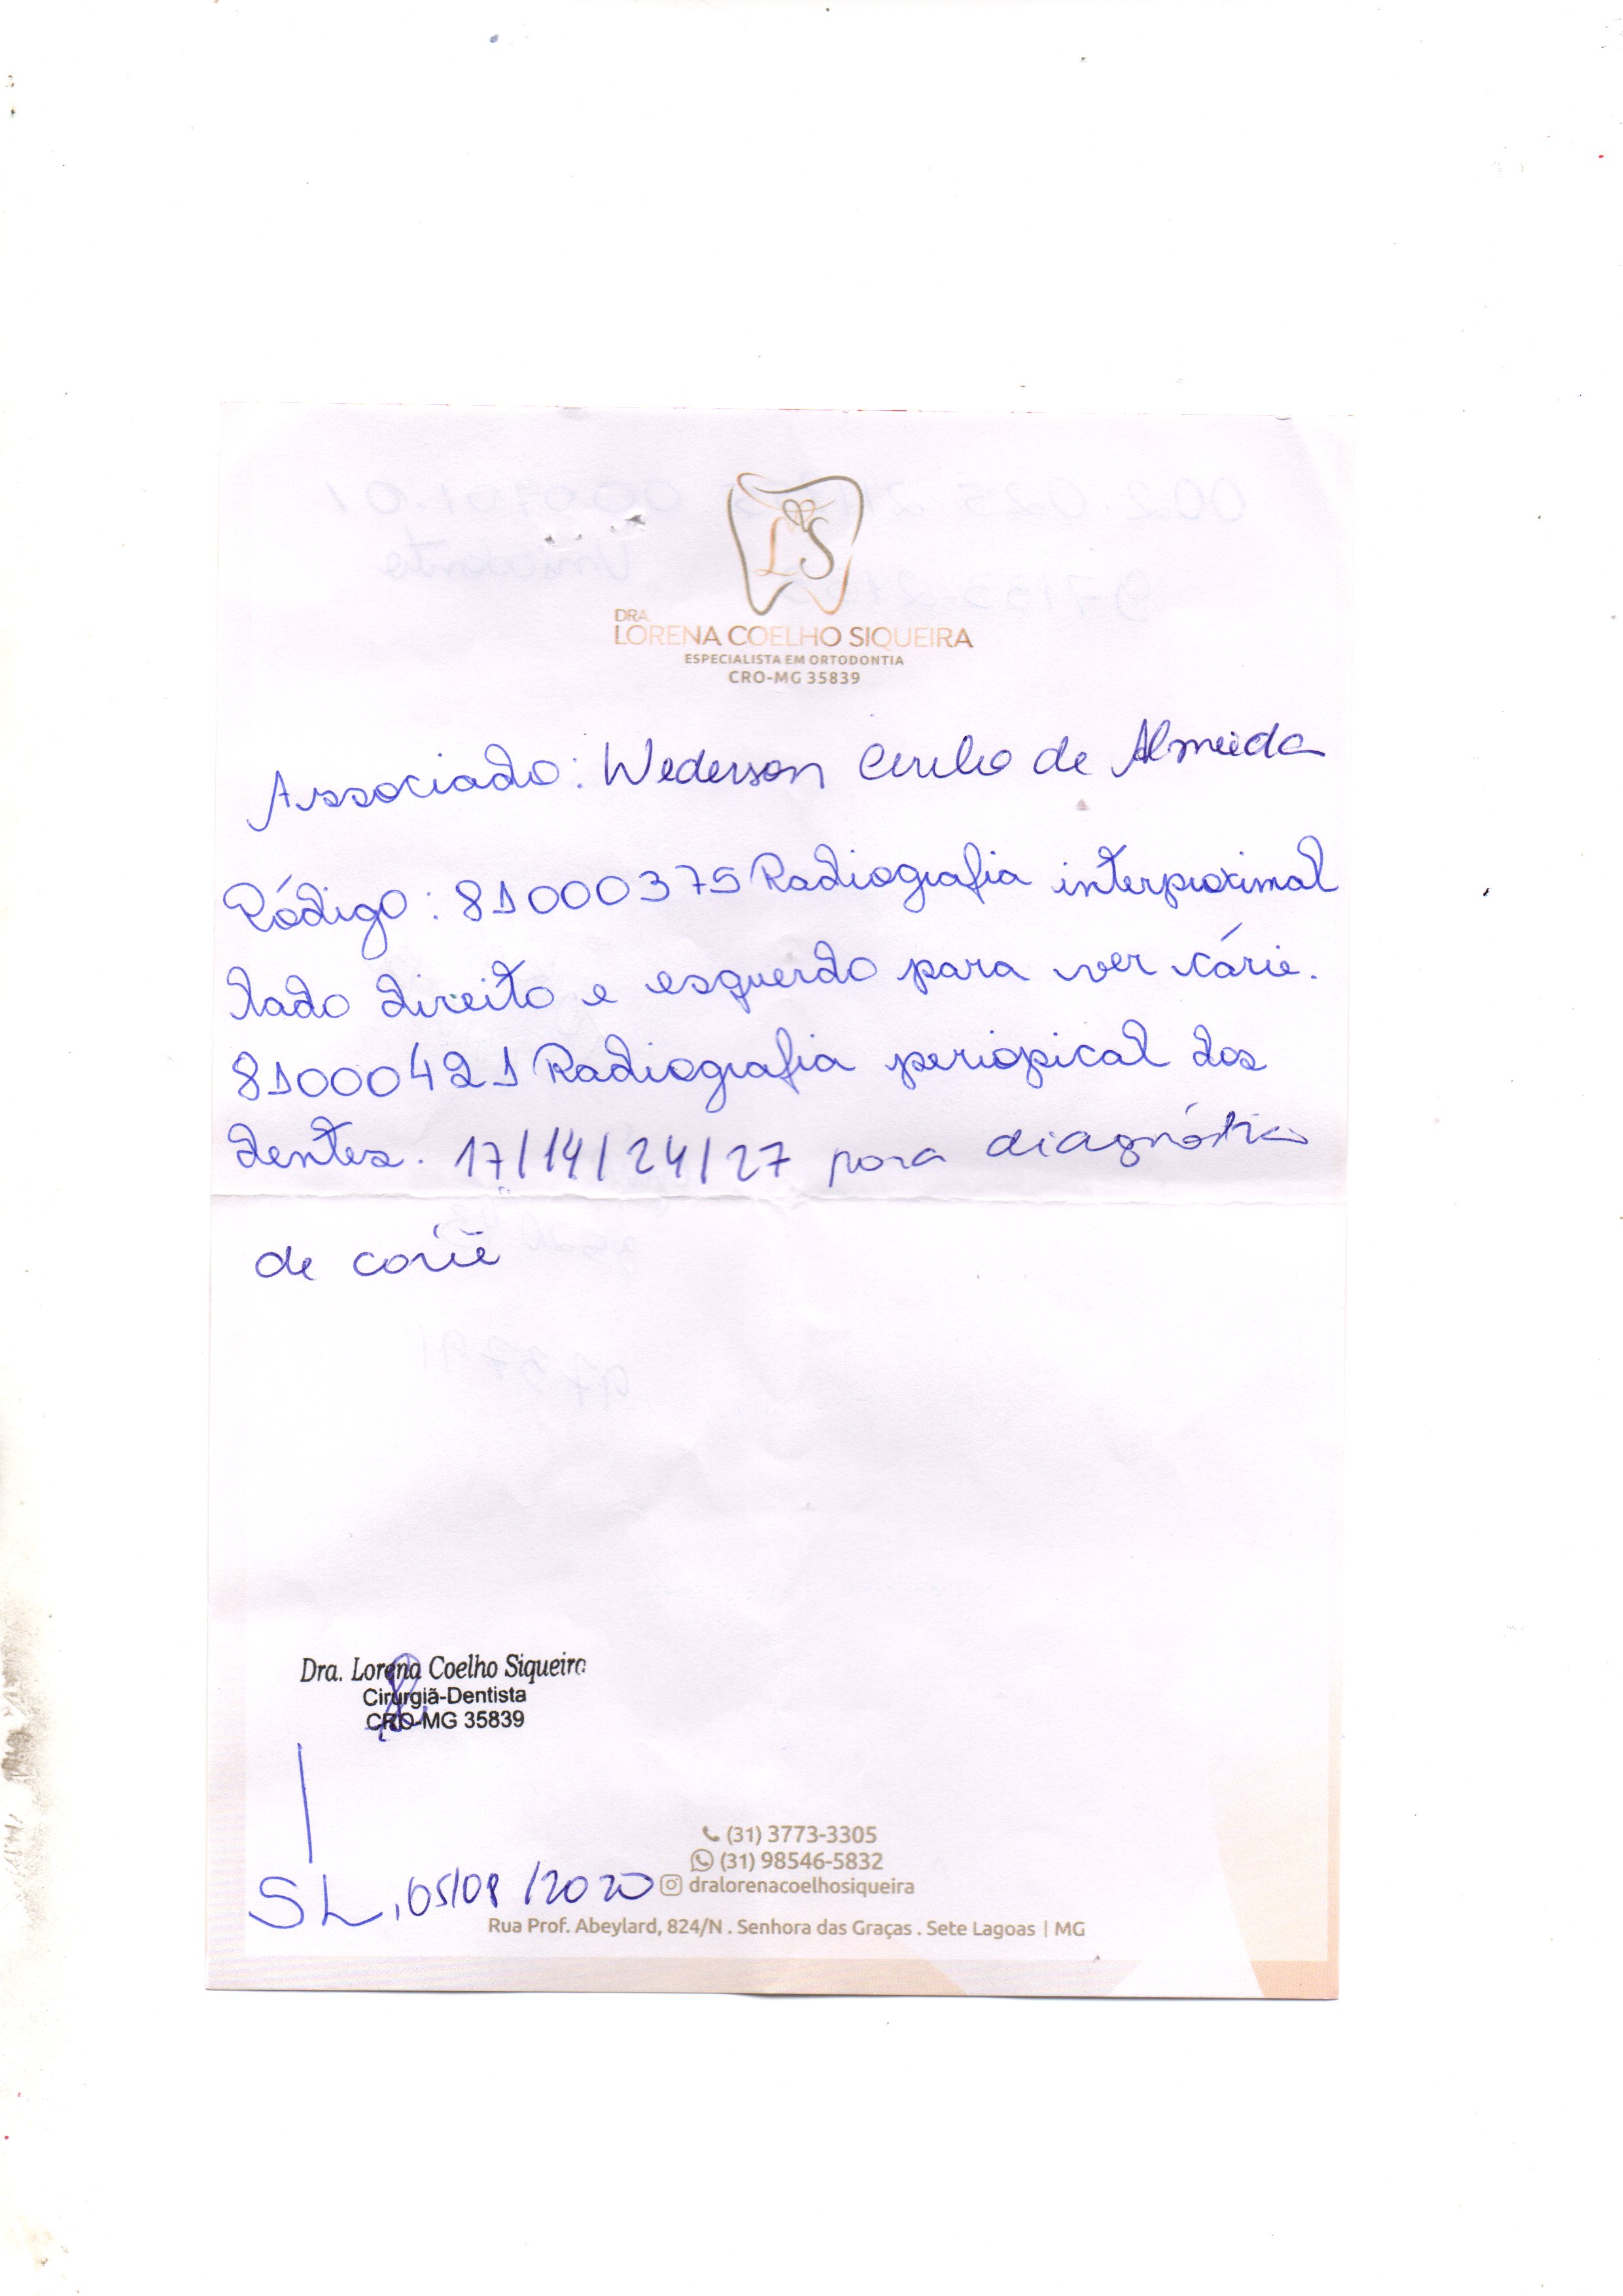 LS
DRA.
LORENA COELHO SIQUEIRA
ESPECIALISTA EM ORTODONTIA
CRO-MG 35839
Associado: Wederson de Almeida
Código: 81000375 Radiografia interproximal
lado direito e esquerdo para ver cárie.
81000421 Radiografia periapical dos
dentes. 17/14/24/27 para diagnóstico
de cárie
Dra. Lorena Coelho Siqueira
Cirurgiã-Dentista
CRO-MG 35839
(31) 3773-3305
(31) 98546-5832
dralorenacoelhosiqueira
SL, 05/08/2020
Rua Prof. Abeylard, 824/N . Senhora das Graças . Sete Lagoas | MG